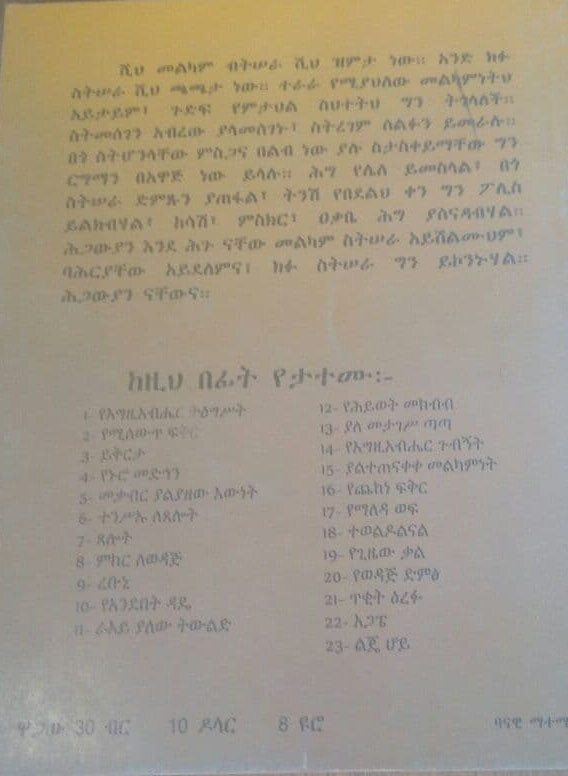 ሺህ መልካም ብትሠራ ሺህ ዝምታ ነው። አንድ ክፉ
ስትሠራ ሺህ ጫጫታ ነው። ተራራ የሚያህለው መልካምነትህ
አይታይም፣ ጉድፍ የምታህል ስህተትህ ግን ትጎላለች።
ስትመሰገን አብረው ያላመሰገኑ፣ ስትረገም ሰልፉን ይመራሉ።
በጎ ስትሆንላቸው ምስጋና በልብ ነው ያሉ ስታስቀይማቸው ግን
ርግማን በአዋጅ ነው ይላሉ። ሕግ የሌለ ይመስላል፣ በጎ
ስትሠራ ድምጹን ያጠፋል፣ ትንሽ የበደልህ ቀን ግን ፖሊስ
ይልክብሃል፣ ከሳሽ፣ ምስክር፣ ዐቃቤ ሕግ ያሰናዳብሃል።
ሕጋውያን እንደ ሕጉ ናቸው መልካም ስትሠራ አይሸልሙህም፣
ባሕርያቸው አይደለምና፣ ክፉ ስትሠራ ግን ይኮንኑሃል።
ሕጋውያን ናቸውና።
ከዚህ በፊት የታተሙ፦
1- የእግዚአብሔር ትዕግሥት
2- የሚለውጥ ፍቅር
3- ይቅርታ
4- የኑሮ መድኅን
5- መቃብር ያልያዘው እውነት
6- ተንሥኡ ለጸሎት
7- ጸሎት
8- ምክር ለወዳጅ
9- ረቡኒ
10- የአንደበት ዳዴ
11- ራእይ ያለው ትውልድ
12- የሕይወት መክብብ
13- ያለ መታገሥ ጣጣ
14- የእግዚአብሔር ጉብኝት
15- ያልተጠናቀቀ መልካምነት
16- የጨከነ ፍቅር
17- የማለዳ ወፍ
18- ተወልዶልናል
19- የጊዜው ቃል
20- የወዳጅ ድምፅ
21- ጥቂት ዕረፉ
22- አጋፔ
23- ልጄ ሆይ
ዋጋው 30 ብር 10 ዶላር 8 ዩሮ
ባናዊ ማተሚ